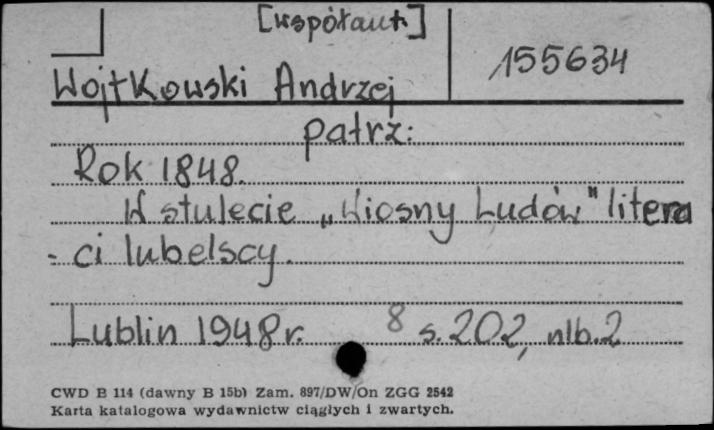 [współaut.]
155634
Wojtkowski Andrzej
patrz:
Rok 1848.
W stulecie „Wiosny Ludów" litera
- ci lubelscy.
Lublin 1948 r. 8 s. 202, nlb. 2
CWD B 114 (dawny B 15b) Zam. 897/DW/On ZGG 2542
Karta katalogowa wydawnictw ciągłych i zwartych.